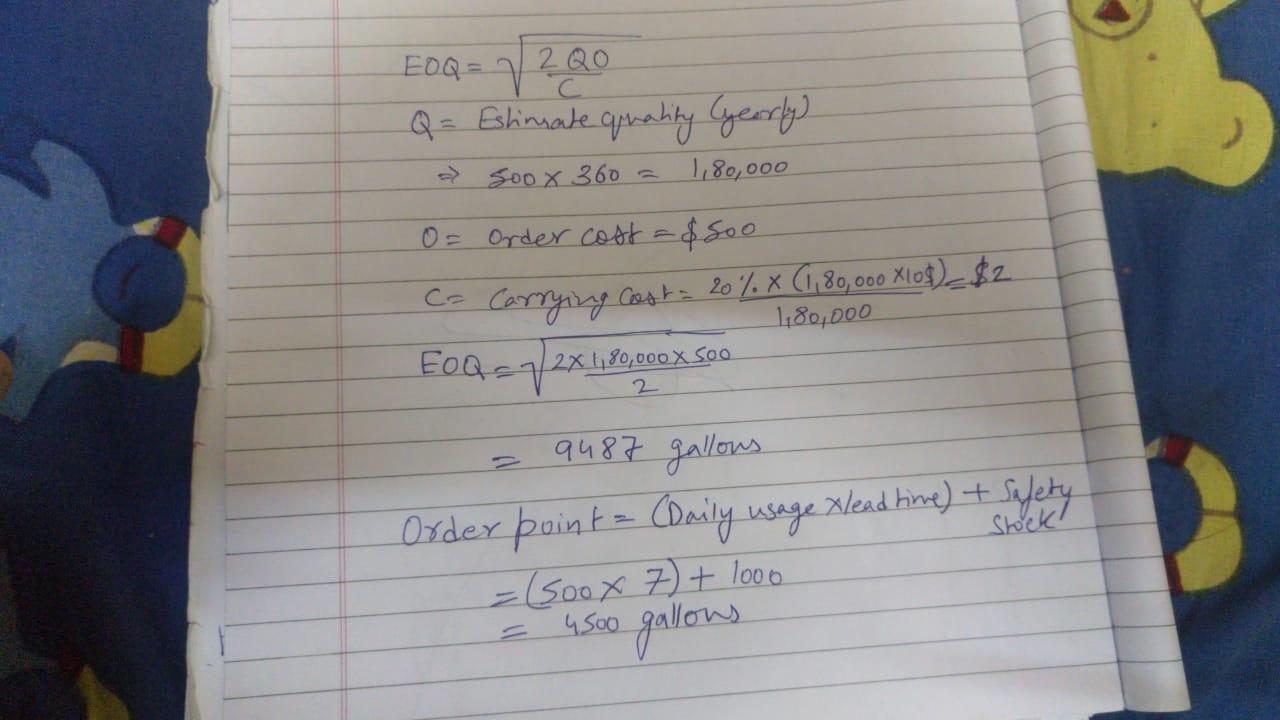 EOQ = √ 2 QO / C
Q = Estimate quality (yearly)
⇒ 500 x 360 = 1,80,000
O = Order cost = $500
C = Carrying cost = 20 % x (1,80,000 x10$) / 1,80,000 = $2
EOQ = √ 2 x 1,80,000 x 500 / 2
= 9487 gallons
Order point = (Daily usage x lead time) + Safety
Stock
= (500 x 7) + 1000
= 4500 gallons